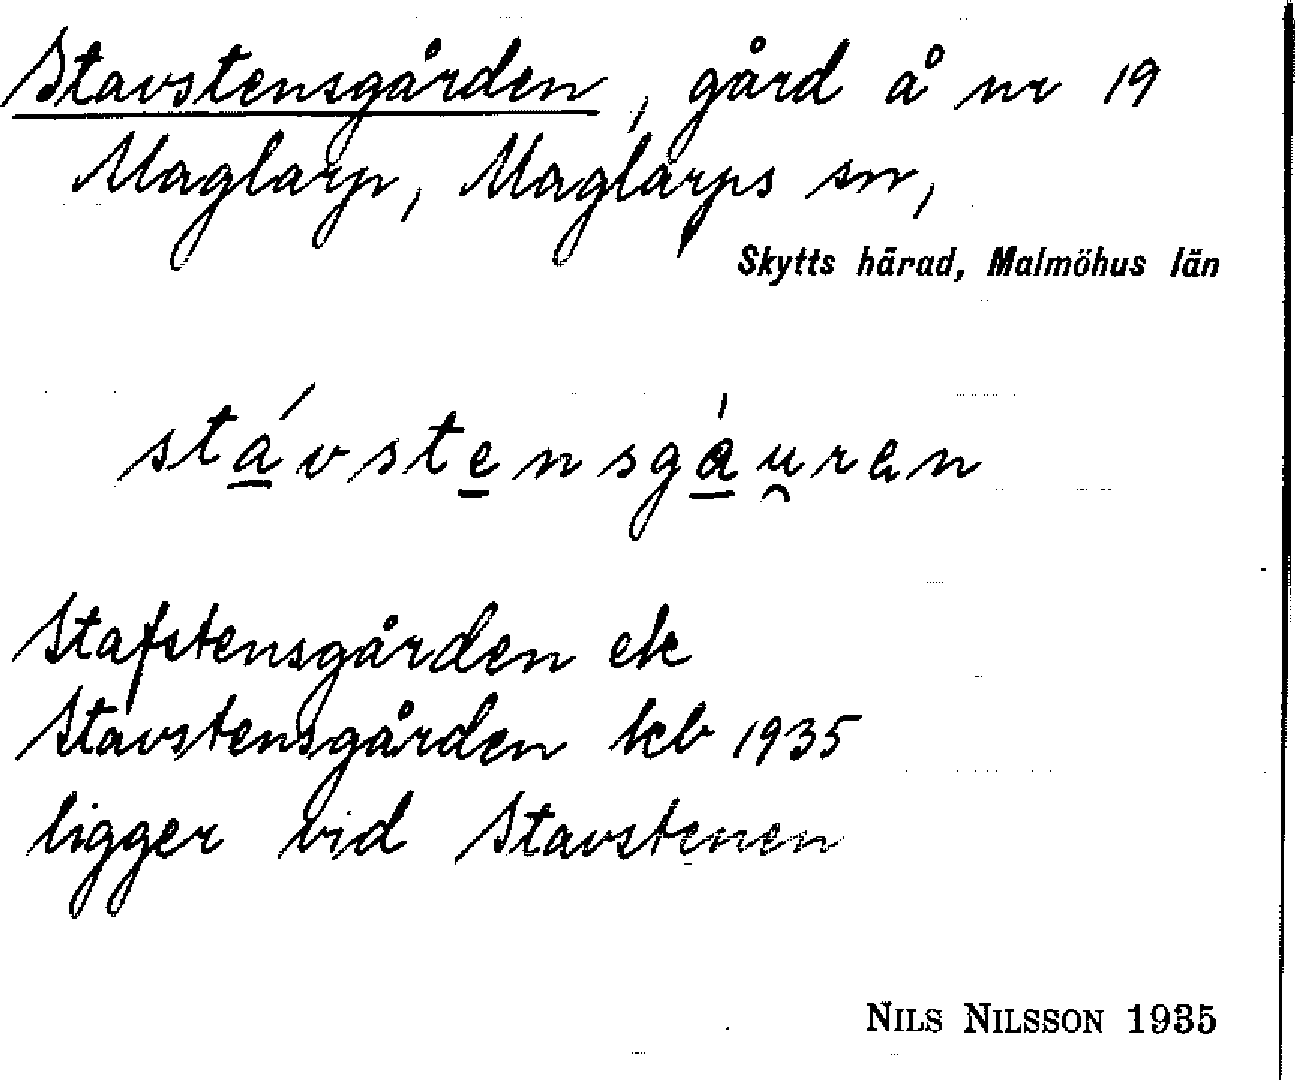 Stavstensgården, gård å nr 19
Maglarp, Maglarps sn,
Skytts härad, Malmöhus län
stávstensgáu̯ren
Stafstensgården ek
Stavstensgården kb 1935
ligger vid Stavstenen
NILS NILSSON 1935